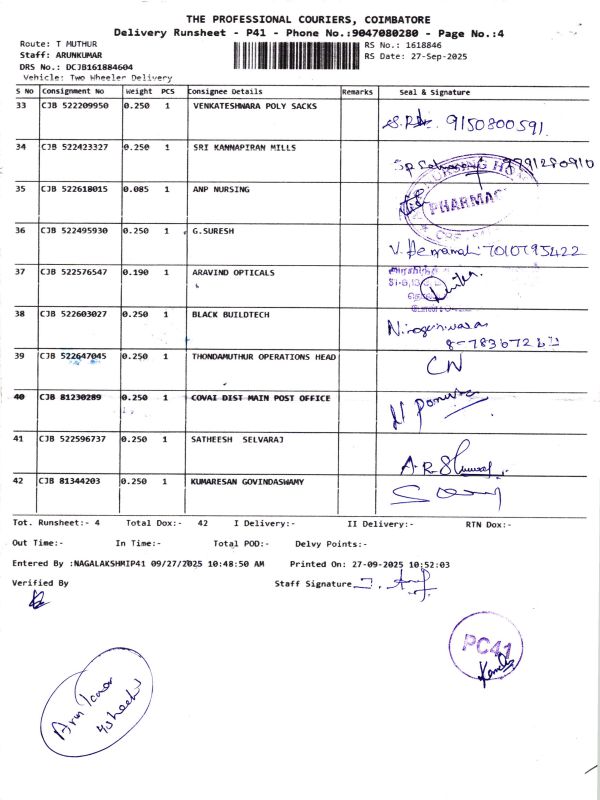 THE PROFESSIONAL COURIERS, COIMBATORE
Delivery Runsheet - P41 - Phone No.:9047080280 - Page No.:4
Route: T MUTHUR RS No.: 1618846
Staff: ARUNKUMAR RS Date: 27-Sep-2025
DRS No.: DCJB161884604
Vehicle: Two Wheeler Delivery
S No Consignment No Weight PCS Consignee Details Remarks Seal & Signature
33 CJB 522209950 0.250 1 VENKATESHWARA POLY SACKS
9150800591
34 CJB 522423327 0.250 1 SRI KANNAPIRAN MILLS
35 CJB 522618015 0.085 1 ANP NURSING
PHARMAC
36 CJB 522495930 0.250 1 G.SURESH
7010795422
37 CJB 522576547 0.190 1 ARAVIND OPTICALS
38 CJB 522603027 0.250 1 BLACK BUILDTECH
39 CJB 522647045 0.250 1 THONDAMUTHUR OPERATIONS HEAD
CN
40 CJB 81230289 0.250 1 COVAI DIST MAIN POST OFFICE
41 CJB 522596737 0.250 1 SATHEESH SELVARAJ
42 CJB 81344203 0.250 1 KUMARESAN GOVINDASWAMY
Tot. Runsheet:- 4 Total Dox:- 42 I Delivery:- II Delivery:- RTN Dox:-
Out Time:- In Time:- Total POD:- Delvy Points:-
Entered By :NAGALAKSHMIP41 09/27/2025 10:48:50 AM Printed On: 27-09-2025 10:52:03
Verified By Staff Signature
PC41
Arun kumar
4sheets